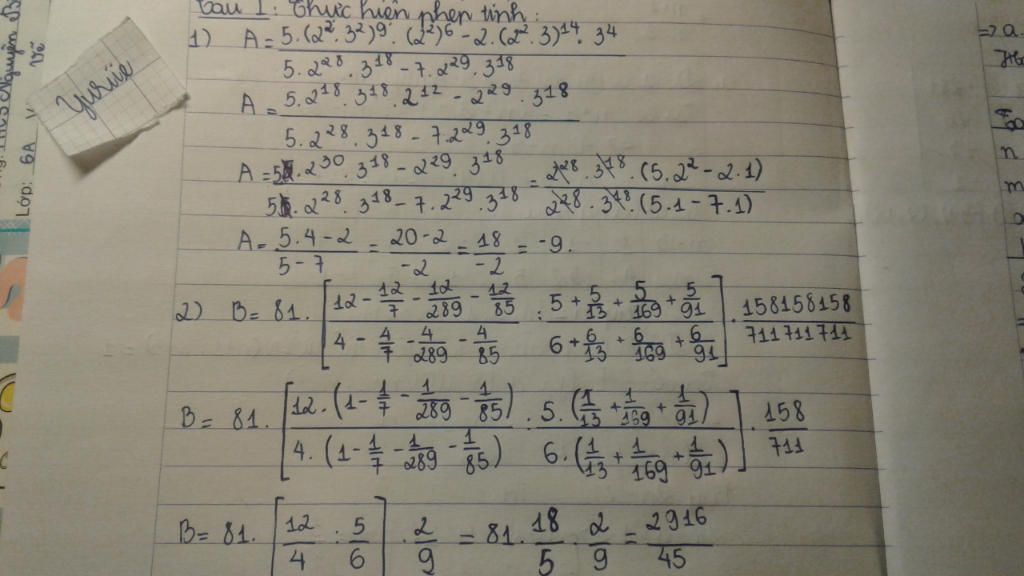 Câu 1: Thực hiện phép tính:
1) A = \frac{5.(2^2.3^2)^9.(2^2)^6 - 2.(2^2.3)^{14}.3^4}{5.2^{28}.3^{18} - 7.2^{29}.3^{18}}
A = \frac{5.2^{18}.3^{18}.2^{12} - 2^{29}.3^{18}}{5.2^{28}.3^{18} - 7.2^{29}.3^{18}}
A = \frac{5.2^{30}.3^{18} - 2^{29}.3^{18}}{5.2^{28}.3^{18} - 7.2^{29}.3^{18}} = \frac{2^{28}.3^{18}.(5.2^2 - 2.1)}{2^{28}.3^{18}.(5.1 - 7.1)}
A = \frac{5.4 - 2}{5 - 7} = \frac{20 - 2}{-2} = \frac{18}{-2} = -9.
2) B = 81.[\frac{12 - \frac{12}{7} - \frac{12}{289} - \frac{12}{85}}{4 - \frac{4}{7} - \frac{4}{289} - \frac{4}{85}} : \frac{5 + \frac{5}{13} + \frac{5}{169} + \frac{5}{91}}{6 + \frac{6}{13} + \frac{6}{169} + \frac{6}{91}}].\frac{158158158}{711711711}
B = 81.[\frac{12.(1 - \frac{1}{7} - \frac{1}{289} - \frac{1}{85})}{4.(1 - \frac{1}{7} - \frac{1}{289} - \frac{1}{85})} : \frac{5.(\frac{1}{13} + \frac{1}{169} + \frac{1}{91})}{6.(\frac{1}{13} + \frac{1}{169} + \frac{1}{91})}].\frac{158}{711}
B = 81.[\frac{12}{4} : \frac{5}{6}].\frac{2}{9} = 81.\frac{18}{5}.\frac{2}{9} = \frac{2916}{45}
Yuriie
Lớp: 6A